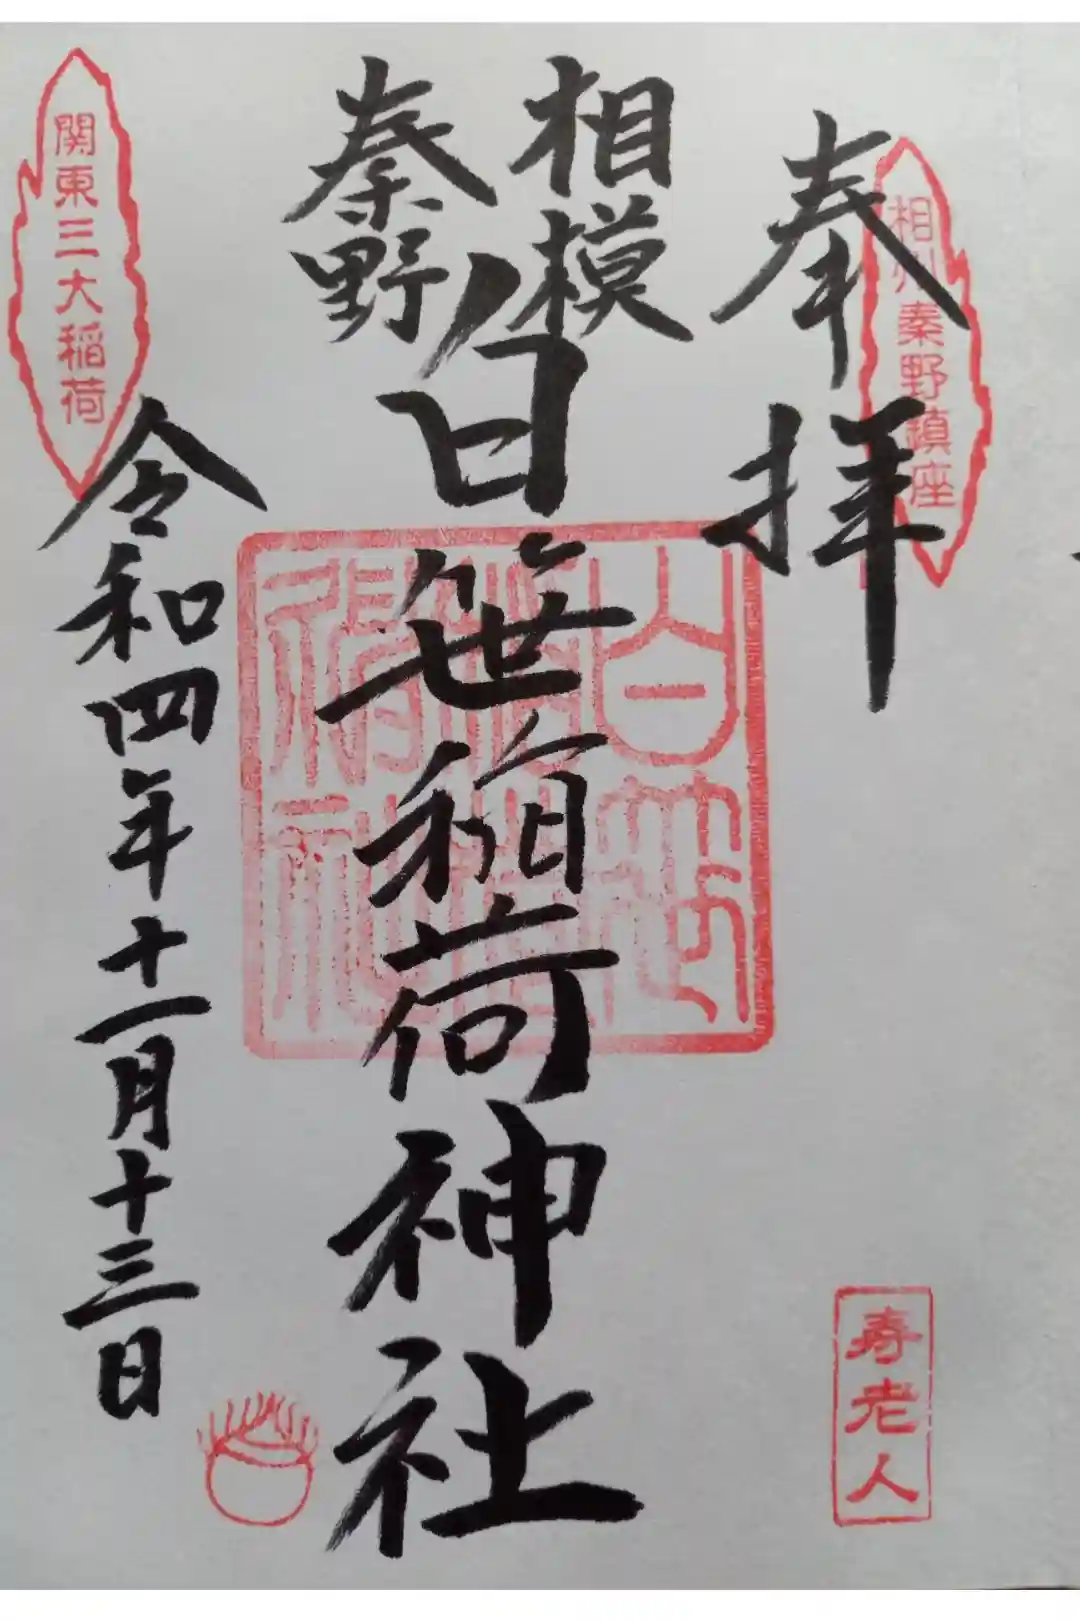 奉拝
相州秦野鎮座
相模
秦野
白笹稲荷神社
令和四年十一月十三日
関東三大稲荷
寿老人